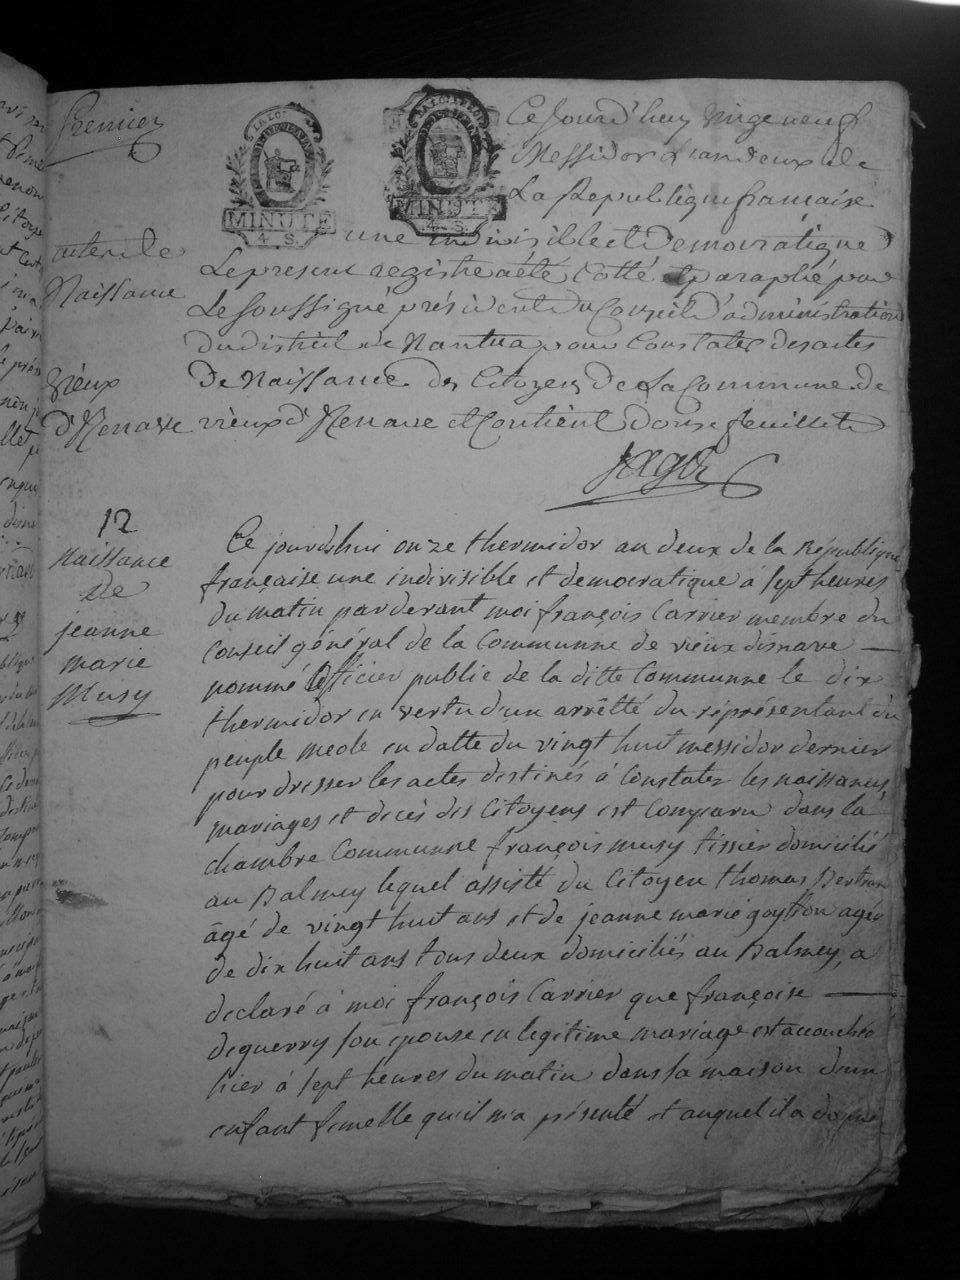 Premier
Ce Jourd'huy Vingt neuf
Messidor L'an deux de
La Republique française
une indivisible et Democratique
acte de
Naissance
Le present registre a été Cotté et paraphé par
Le Soussigné président du Conseil d'administration
du district de Nantua pour Constater des actes
vieux
d'Izenave
De Naissance des Citoyens De La Commune de
vieux d'Izenave et Contient Douse feuillets
LA LOI
MINUTE
4. S.
LA LOI
MINUTE
4. S.
12
Naissance
de
jeanne
marie
Musy
Ce jourdhui onze thermidor an deux de la République
française une indivisible et democratique à sept heures
du matin par devant moi françois Carrier membre du
Conseil général de la Communne de vieux disnave
nommé Officier public de la ditte Communne le dix
thermidor en vertu d'un arrêtté du réprésentant du
peuple meole en datte du vingt huit messidor dernier
pour dresser les actes destinés à Constater les naissances,
mariages et décès des Citoyens est Comparu dans la
chambre Communne françois musy tissier domicilié
au Balmey lequel assisté du Citoyen thomas Bertran
âgé de vingt huit ans et de jeanne marie agée
de dix huit ans tous deux domiciliés au Balmey, a
declaré à moi françois Carrier que françoise
deguerry son epouse en legitime mariage est accouchée
hier à sept heures du matin dans sa maison d'un
enfant femelle qu'il m'a présenté et auquel il a donné